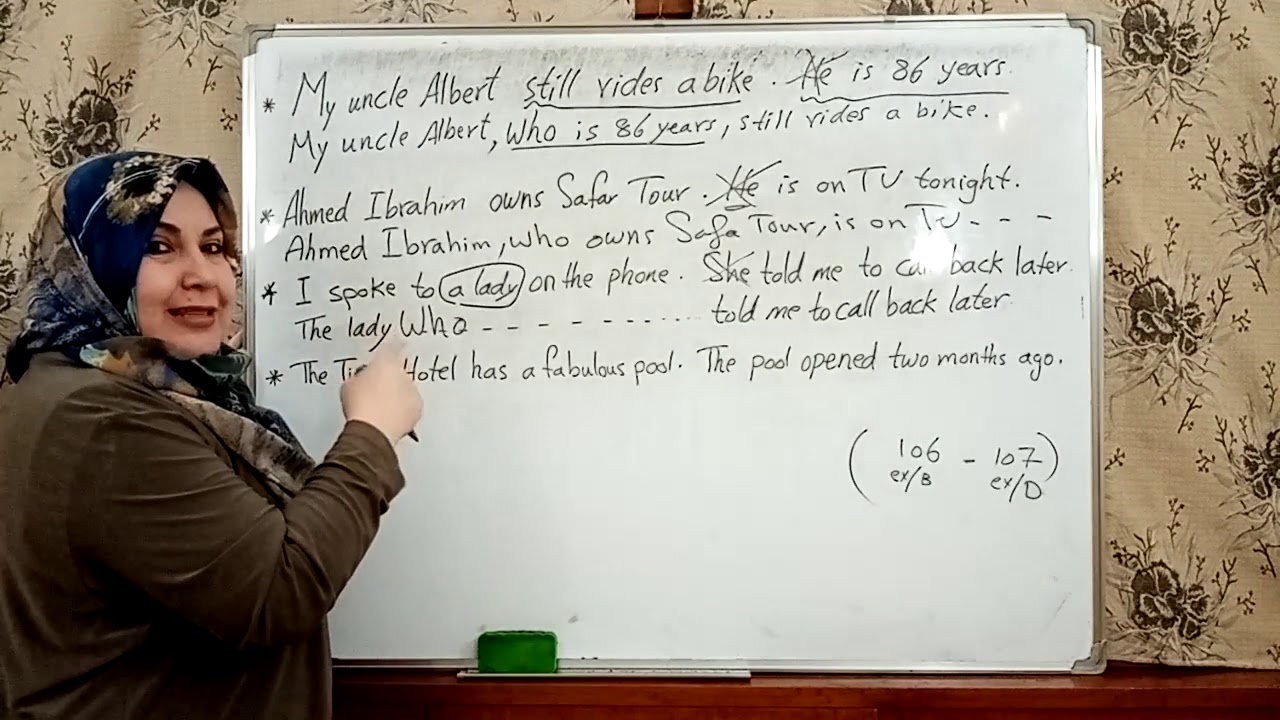 * My uncle Albert still rides a bike. He is 86 years.
My uncle Albert, who is 86 years, still rides a bike.
* Ahmed Ibrahim owns Safar Tour. He is on TV tonight.
Ahmed Ibrahim, who owns Safa Tour, is on TV - - -
* I spoke to a lady on the phone. She told me to call back later.
The lady Who - - - - - ....... told me to call back later
* The Hotel has a fabulous pool. The pool opened two months ago.
(106 - 107)
ex/B ex/D